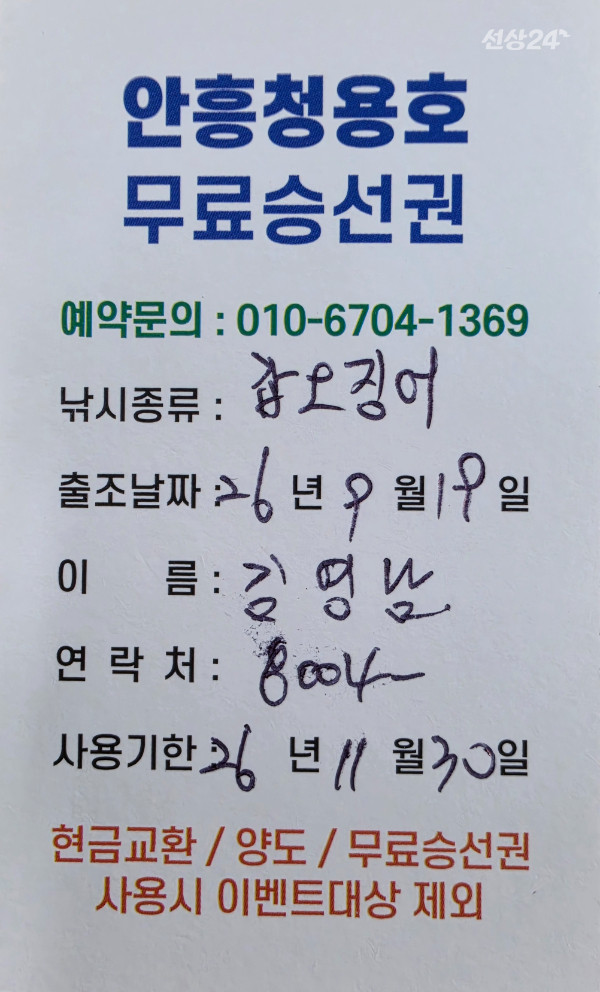 선상24
안흥청용호
무료승선권
예약문의 : 010-6704-1369
낚시종류 : 갑오징어
출조날짜 : 26 년 9 월 19 일
이 름 : 김영남
연 락 처 : 8004
사용기한 : 26 년 11 월 30 일
현금교환 / 양도 / 무료승선권
사용시 이벤트대상 제외